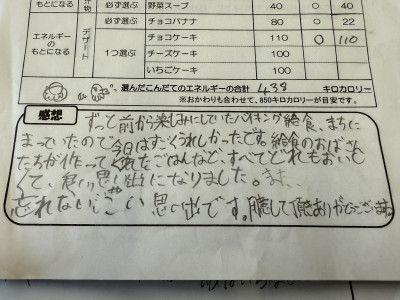 もとになる 汁物 必ず選ぶ 野菜スープ 40 ○ 40
エネルギーの もとになる デザート 必ず選ぶ チョコバナナ 80 ○ 22
1つ選ぶ チョコケーキ 110 ○ 110
チーズケーキ 100
いちごケーキ 100
選んだこんだてのエネルギーの合計 438 キロカロリー
※おかわりも合わせて、850キロカロリーが目安です。
感想
ずっと前から楽しみにしていたバイキング給食、まちに
まっていたので今日はすごくうれしかったです。給食のおばさん
たちが作ってくれたごはんなど、すべてどれもおいし
くて、思い出になりました。
忘れない 思い出です。 ありがとうございます